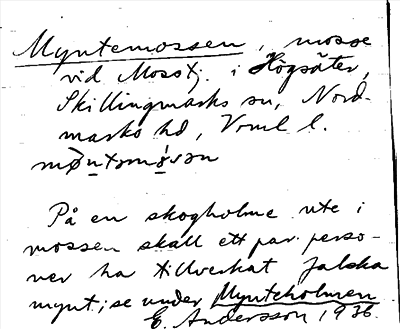 Myntemossen, mosse
vid Mosstj. i Högsäter,
Skillingmarks sn, Nord-
marks hd, Vrml l.
møntəmòsən
På en skogholme ute i
mossen skall ett par perso-
ner ha tillverkat falska
mynt; se under Myntholmen.
E. Andersson 1936.